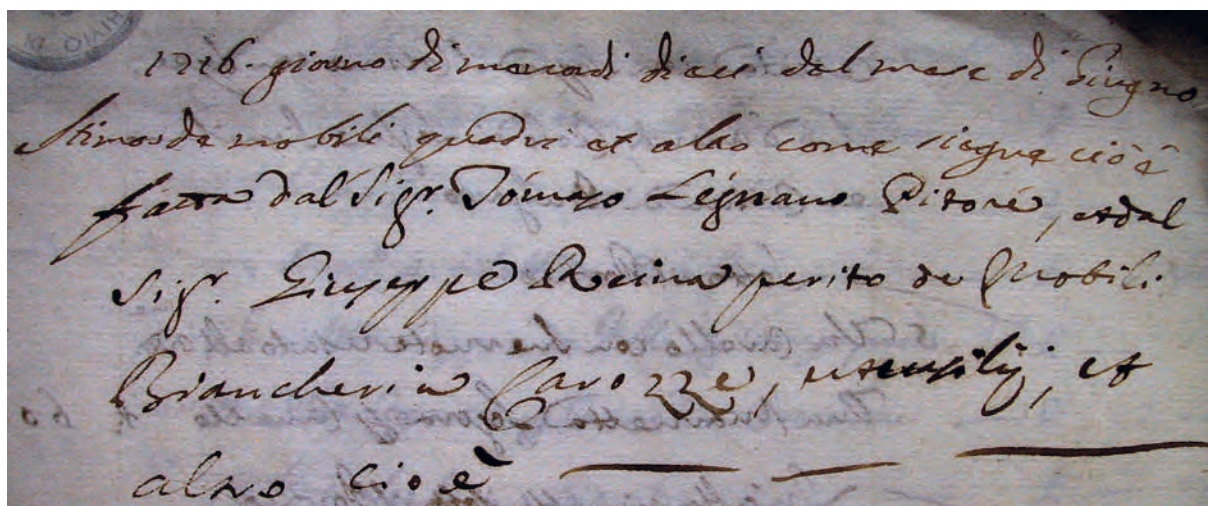 1716. giorno di mercordi dieci del mese di Giugno
Stima de mobili quadri et altro come siegue cioè
fatta dal Sigr. Tomaso Legnano Pitore, et dal
Sigr. Giuseppe Reina perito de Mobili
Biancheria Carozze, utensilij, et
altro cioè